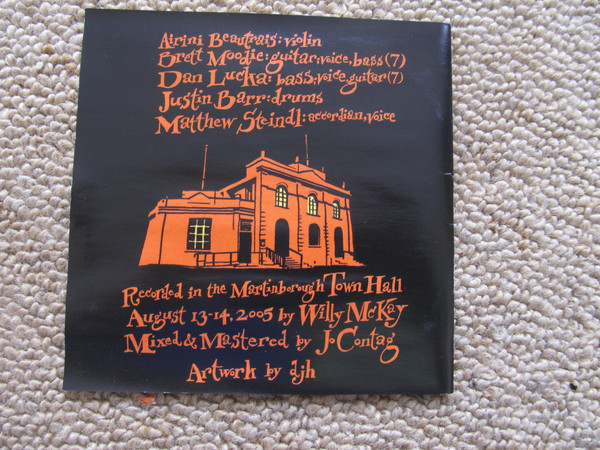 Airini Beautrais: violin
Brett Moodie: guitar, voice, bass (7)
Dan Lucka: bass, voice, guitar (7)
Justin Barr: drums
Matthew Steindl: accordian, voice
Recorded in the Martinborough Town Hall
August 13-14, 2005 by Willy McKay
Mixed & Mastered by Jo Contag
Artwork by djh